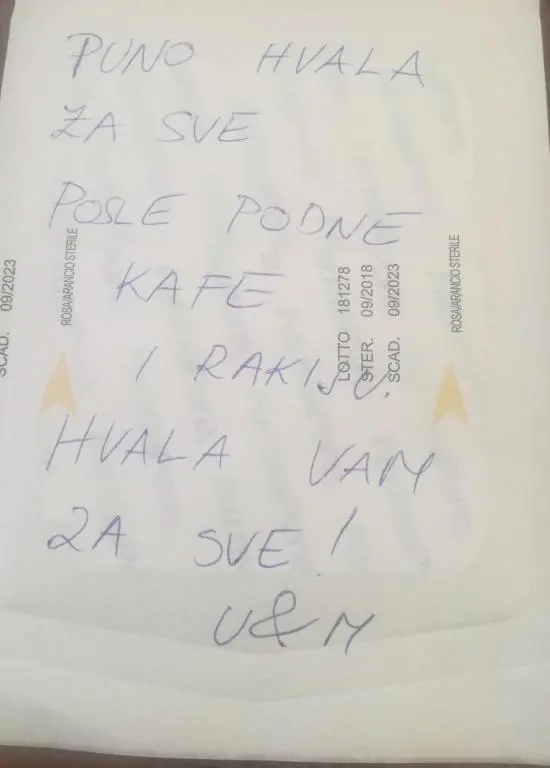 PUNO HVALA
ZA SVE
POSLE PODNE
KAFE
I RAKIJU.
HVALA VAM
ZA SVE!
U&M
SCAD. 09/2023
ROSA/ARANCIO STERILE
LOTTO 181278
STER. 09/2018
SCAD. 09/2023
ROSA/ARANCIO STERILE